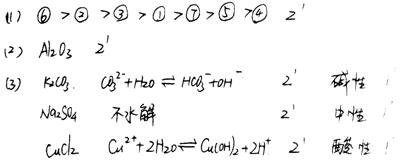 (1) ⑥ > ② > ③ > ① > ⑦ > ⑤ > ④ 2'
(2) Al₂O₃ 2'
(3) K₂CO₃. CO₃²⁻+H₂O ⇌ HCO₃⁻+OH⁻ 2' 碱性 1'
Na₂SO₄ 不水解 2' 中性 1'
CuCl₂ Cu²⁺+2H₂O ⇌ Cu(OH)₂+2H⁺ 2' 酸性 1'